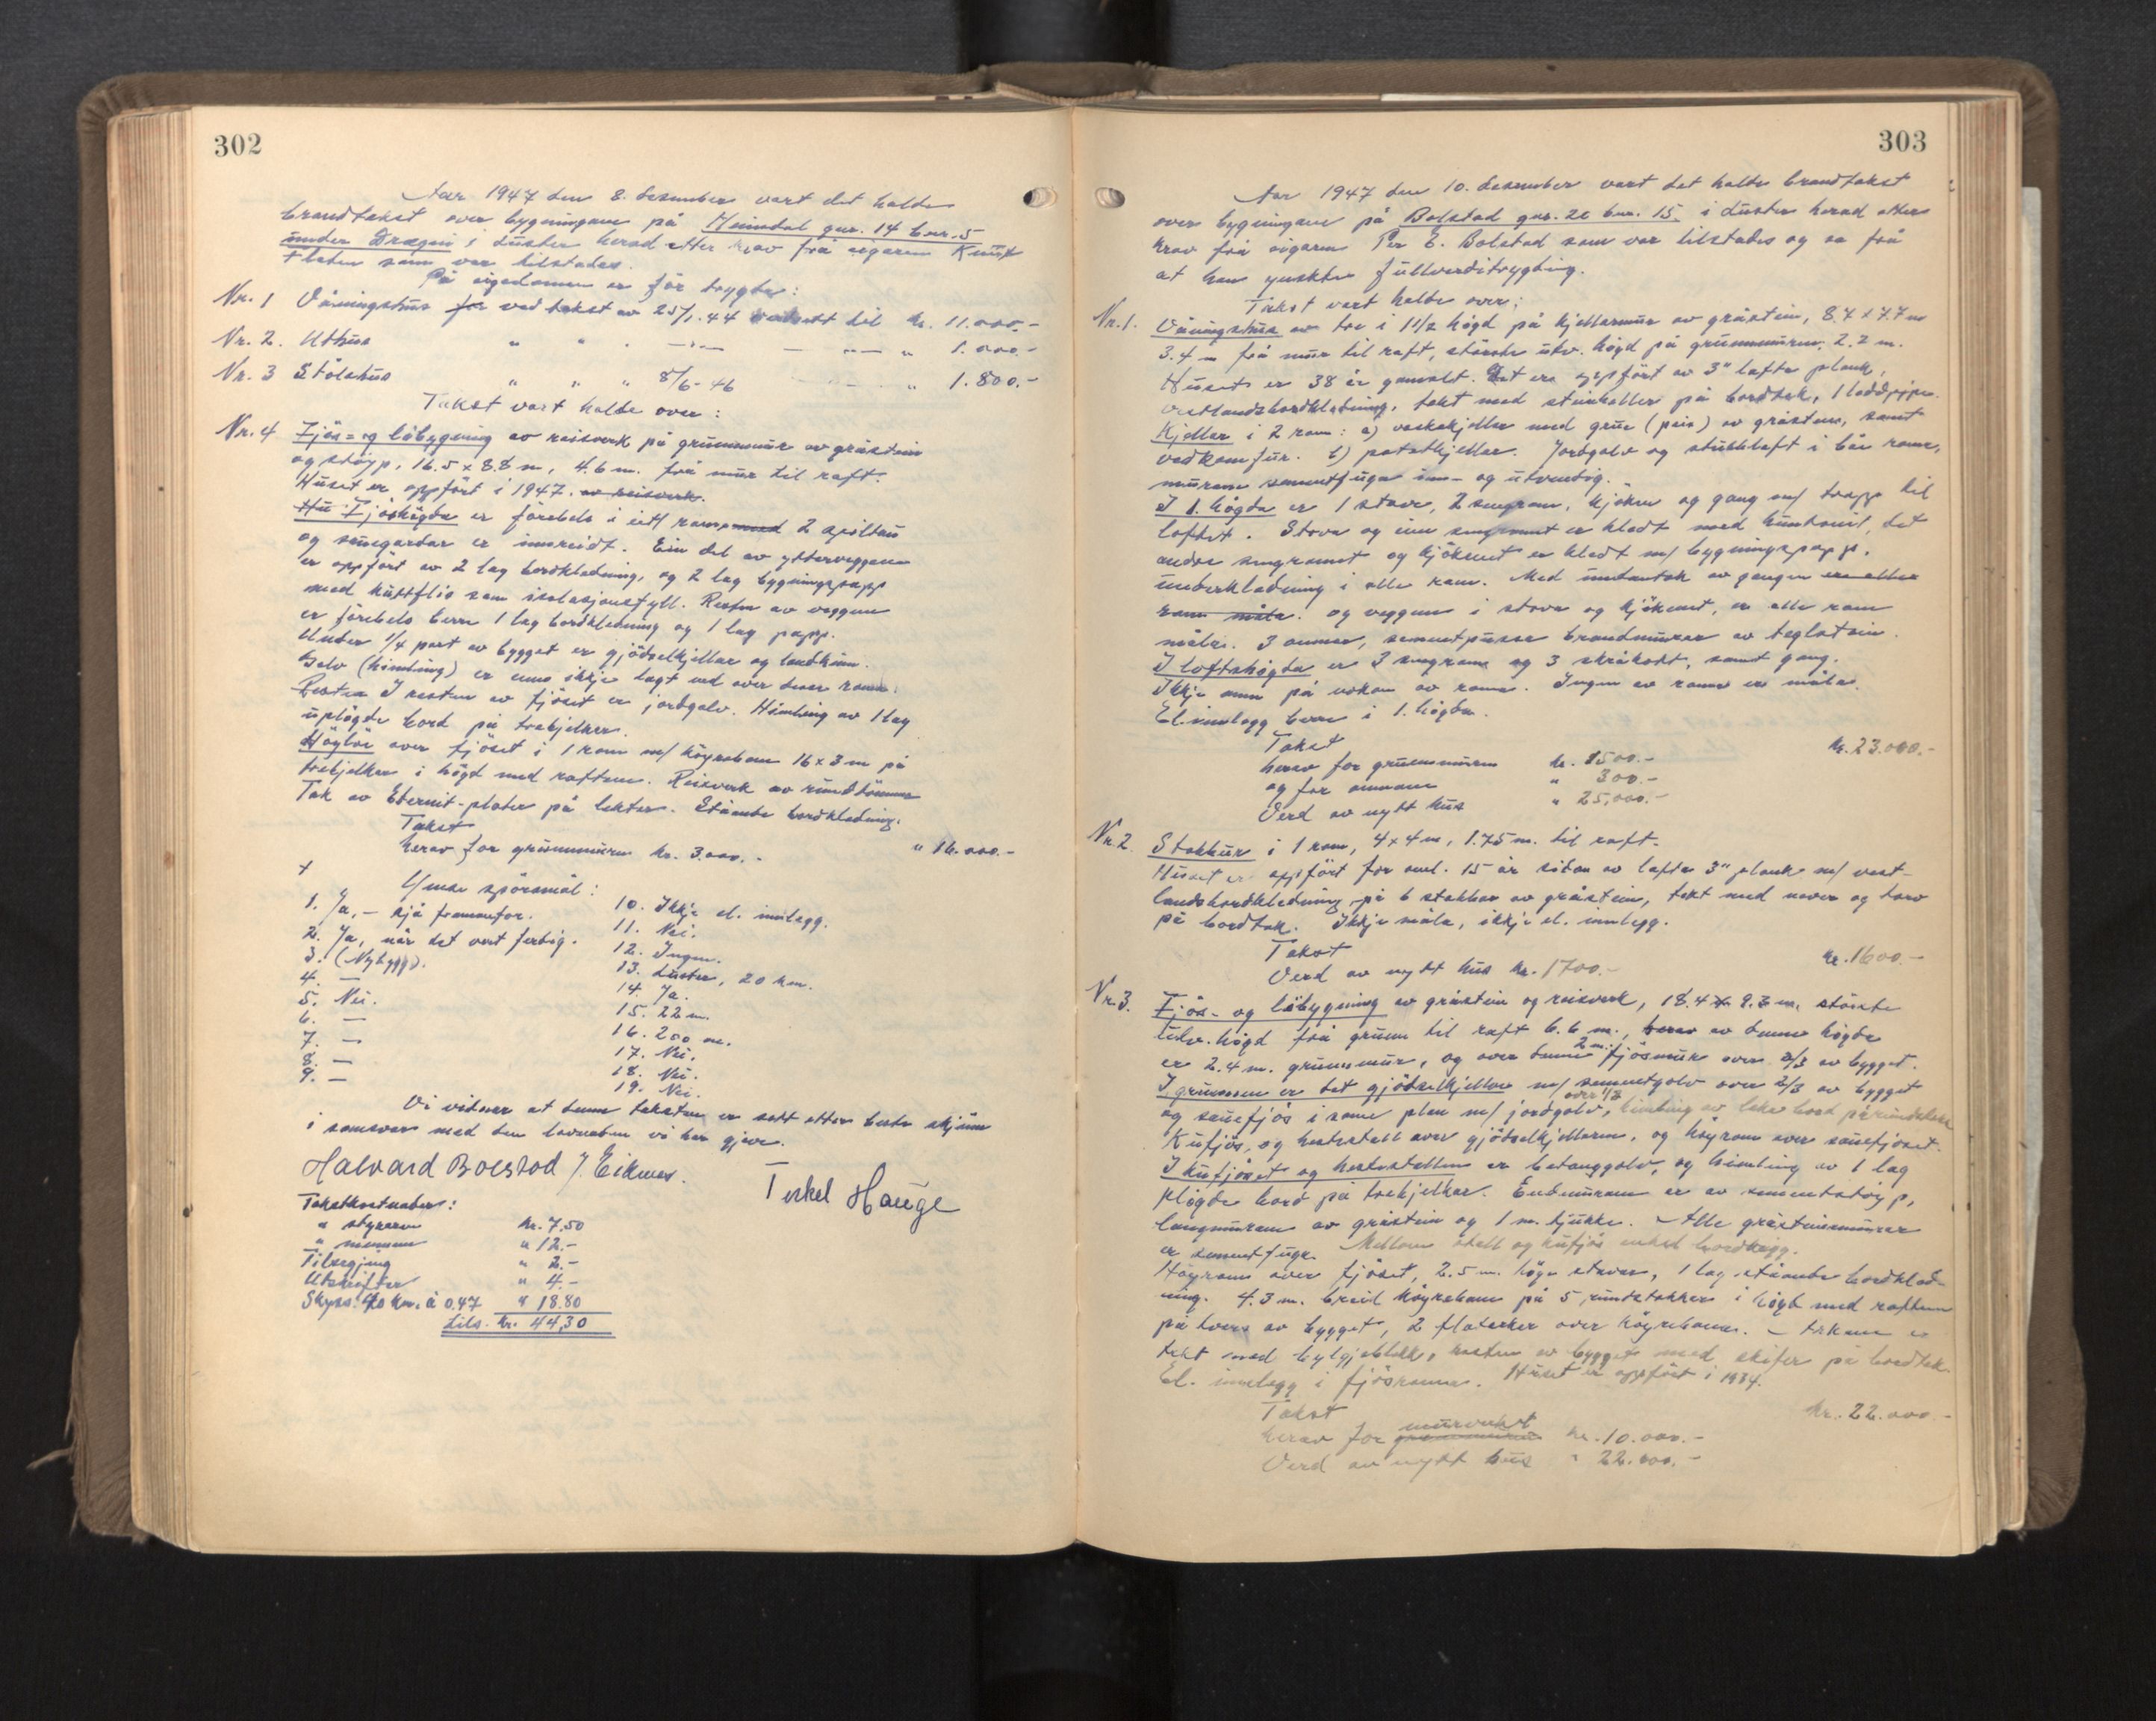 302
Aar 1947 den 8. desember vart det halde
brandtakst over bygningane på Heimdal gnr. 14 bnr. 5
under Drægni i Luster herad etter krav frå eigaren Knut
Flaten som var tilstades.
På eigedomen er før trygda:
Nr. 1 Våningshus for ved takst av 25/1.44 verdsett til kr. 11.000.-
Nr. 2. Uthus " " " —"— — —"— " 1.000.-
Nr. 3 Stølshus " " " 8/6-46 " 1.800.-
Takst vart halde over:
Nr. 4 Fjøs- og løbygning av reisverk på grunnmur av gråstein
og støyp, 16.5 x 8.8 m, 4.6 m. frå mur til raft.
Huset er oppført i 1947. av reisverk.
Hu Fjøshøgda er førebels i eitt rom, med 2 spiltau
og sauegardar er innreidt. Ein del av ytterveggene
er oppført av 2 lag bordkledning, og 2 lag bygningspapp
med kutterflis som isolasjonsfyll. Resten av veggene
er førebels berre 1 lag bordkledning og 1 lag papp.
Under 1/4 part av bygget er gjødselkjellar og landkum.
Golv (himling) er enno ikkje lagt ned over desse romma.
Resten I resten av fjøset er jordgolv. Himling av 1 lag
upløgde bord på trebjelker.
Høyløe over fjøset i 1 rom m/ høyrebene 16 x 3 m på
trebjelker i høgd med raftene. Reisverk av rundtømmer
Tak av Eternit-plater på lekter. Ståande bordkledning.
Takst " 16.000.-
herav for grunnmuren kr. 3.000.-
+
Ymse spørsmål:
1. Ja, – sjå framanfor.
2. Ja, når det vert ferdig.
3. (Nybygg).
4. —
5. Nei.
6. —
7. —
8. —
9. —
10. Ikkje el. innlegg.
11. Nei.
12. Ingen.
13. Luster, 20 km.
14. Ja.
15. 22 m.
16. 200 m.
17. Nei.
18. Nei.
19. Nei.
Vi vidner at denne taksten er sett etter beste skjønn
i samsvar med den lovnaden vi her gjeve.
Halvard Bolstad J. Eikenes. Terkel Hauge
Takstkostnader:
" styraren kr. 7,50
" mennene " 12.-
Tilsegjing " 2.-
Utskrifter " 4.-
Skyss: 40 km. à 0,47 " 18.80
Tils. kr. 44,30
303
Aar 1947 den 10. desember vart det halde brandtakst
over bygningane på Bolstad gnr. 20 bnr. 15. i Luster herad etter
krav frå eigaren Per E. Bolstad som var tilstades og sa frå
at han ynskte fullverditrygding.
Takst vart halde over:
Nr. 1. Våningshus av tre i 1 1/2 høgd på kjellarmur av gråstein, 8.7 x 7.7 m
3.4 m frå mur til raft, største utv. høgd på grunnmuren, 2.2 m.
Huset er 38 år gamalt. Det er oppført av 3" lafta plank,
vestlandsbordkledning, tekt med steinheller på bordtak, 1 loddpipe.
Kjellar i 2 rom: a) vaskekjellar med grue (peis) av gråstein, samt
vedkomfur. b) potetkjellar. Jordgolv og stubbloft i båe romma,
murene sementfuga inn- og utvendig.
I 1. høgda er 1 stove, 2 sengrom, kjøken og gang m/ trapp til
loftet. Stova og eine sengrommet er kledt med huntonit, det
andre sengromet og kjøkenet er kledt m/ bygningspapp.
underkledning i alle rom. Med unntak av gangen er alle
rom måla. og veggene i stova og kjøkenet, er alle rom
måla. 3 omnar, sementpussa brandmurar av teglstein.
I loftshøgda er 3 sengrom og 3 skråkott, samt gang.
Ikkje omn på nokon av romma. Ingen av romma er måla.
El. innlegg berre i 1. høgda.
Takst kr. 23.000.-
herav for grunnmuren kr. 1500.-
og for omnane " 300.-
Verd av nytt hus " 25,000.-
Nr. 2. Stabbur i 1 rom, 4 x 4 m, 1.75 m. til raft.
Huset er oppført for oml. 15 år sidan av lafta 3" plank m/ vest-
landsbordkledning på 6 stabbar av gråstein, tekt med never og torv
på bordtak. Ikkje måla, ikkje el. innlegg.
Takst kr. 1600.-
Verd av nytt hus kr. 1700.-
Nr. 3. Fjøs- og løbygning av gråstein og reisverk, 18.4 x 9.3 m, største
utv. høgd frå grunn til raft 6.6 m., herav av denne høgda
er 2.4 m. grunnmur, og over denne 2 m. fjøsmur over 2/3 av bygget.
I grunnen er det gjødselkjellar m/ sementgolv over 2/3 av bygget
og sauefjøs i same plan m/ jordgolv, over 1/3 himling av lake bord på rundstokk
Kufjøs, og hestestall over gjødselkjellaren, og høyrom over sauefjøset.
I kufjøset og hestestallen er betonggolv, og himling av 1 lag
pløgde bord på trebjelkar. Endemurane er av sementstøyp,
langmurane av gråstein og 1 m. tjukke. Alle gråsteinsmurar
er sementfuga. Mellom stall og kufjøs enkel bordvegg.
Høyrom over fjøset, 2.5 m. høge stavar, 1 lag ståande bordkled-
ning. 4.3 m. breid høyrebene på 5 rundstokker i høgd med raftene
på tvers av bygget, 2 flatsider over høyrebene. –
tekt med bylgjeblekk, resten av bygget med skifer på bordtak.
El. innlegg i fjøsromma. Huset er oppført i 1934.
Takst kr. 22.000.-
herav for grunnmuren murverket kr. 10.000.-
Verd av nytt hus " 22.000.-